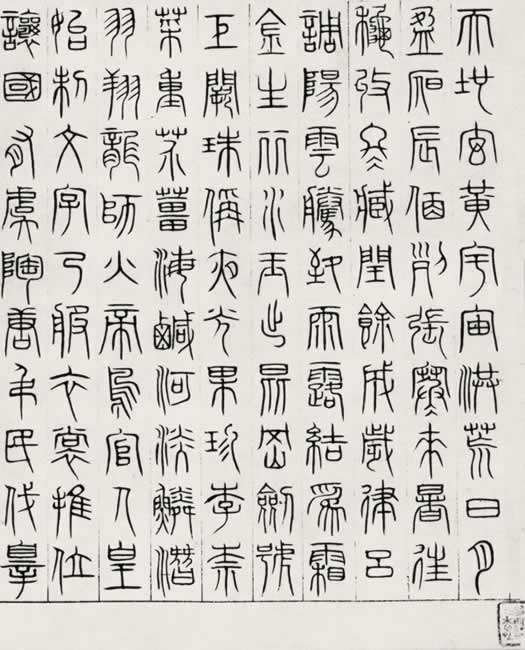 天地玄黃宇宙洪荒日月
盈昃辰宿列張寒來暑往
秋收冬藏閏餘成歲律呂
調陽雲騰致雨露結為霜
金生麗水玉出崑岡劍號
巨闕珠稱夜光果珍李柰
菜重芥薑海鹹河淡鱗潛
羽翔龍師火帝鳥官人皇
始制文字乃服衣裳推位
讓國有虞陶唐弔民伐辠